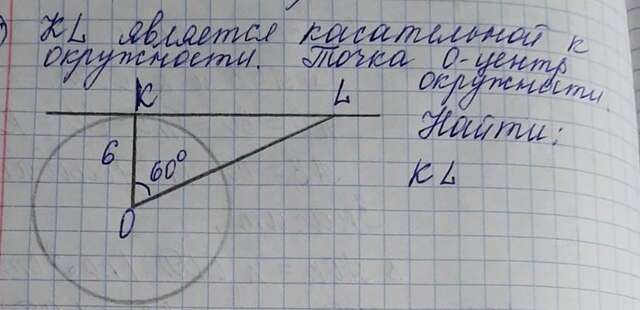 KL является касательной к
окружности. Точка О-центр
окружности.
Найти:
KL
K
L
6
60°
O